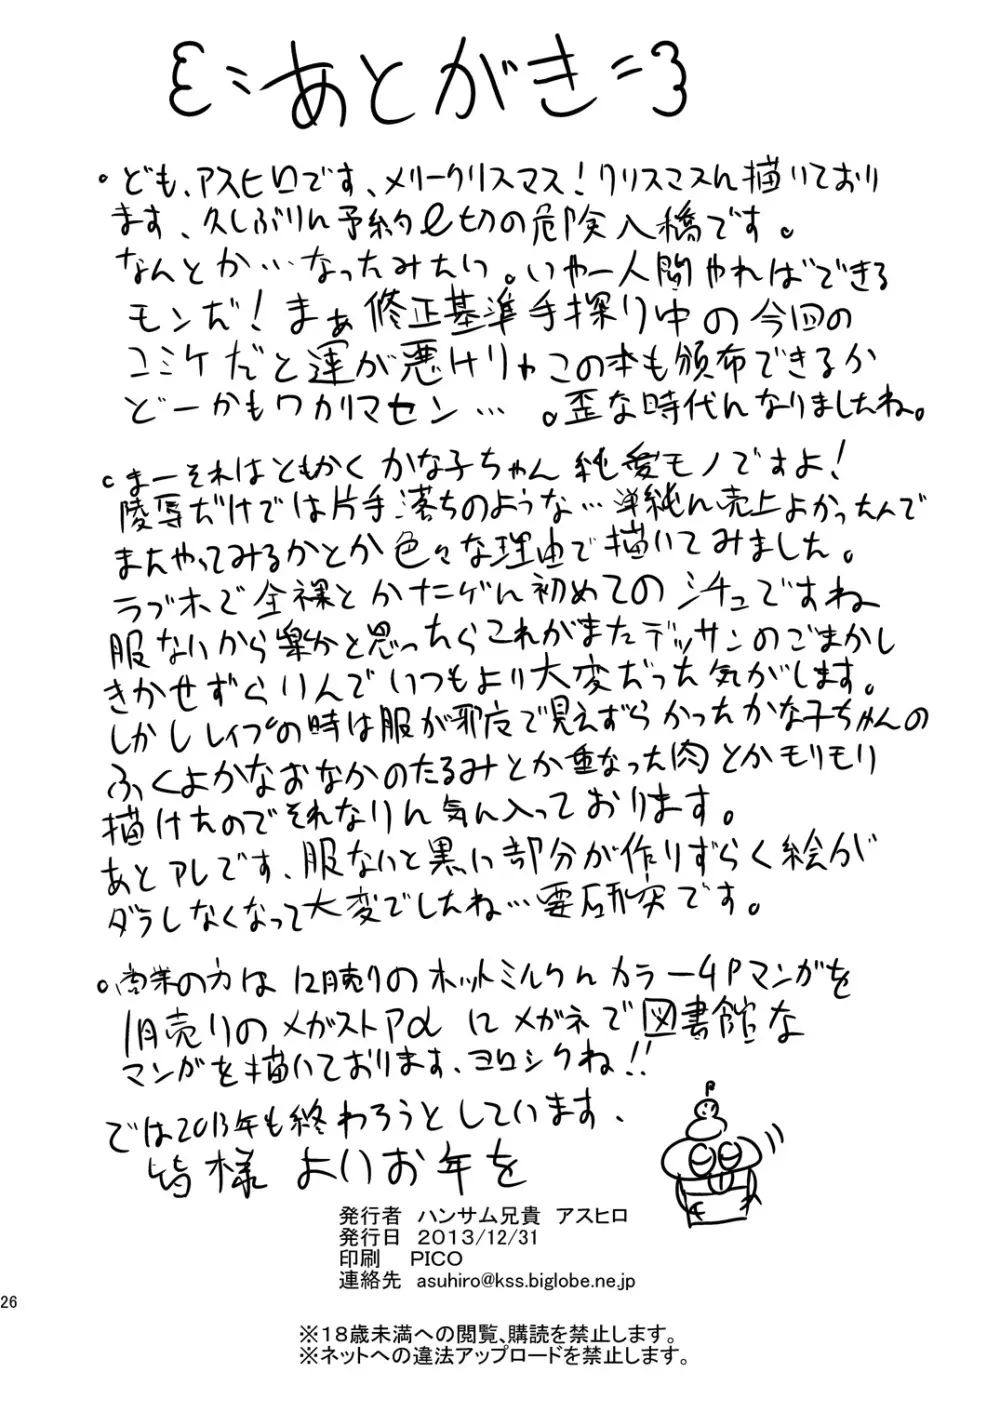 あとがき
。ども、アスヒロです、メリークリスマス！クリスマスに描いており
ます、久しぶりに予約〆切の危険入稿です。
なんとか…なったみたい。いやー人間やればできる
モンだ！まぁ修正基準手探り中の今回の
コミケだと運が悪けりゃこの本も頒布できるか
どーかもワカリマセン…。歪な時代になりましたね。
。まーそれはともかくかな子ちゃん純愛モノですよ！
陵辱だけでは片手落ちのような…単純に売上よかったんで
またやってみるかとか色々な理由で描いてみました。
ラブホで全裸とかナニゲに初めてのシチュですね
服ないから楽かと思ったらこれがまたデッサンのごまかし
きかせずらいんでいつもより大変だった気がします。
しかしレイプの時は服が邪魔で見えずらかったかな子ちゃんの
ふくよかなおなかのたるみとか重なった肉とかモリモリ
描けたのでそれなりに気に入っております。
あとアレです、服ないと黒い部分が作りずらく絵が
ダラしなくなって大変でしたね…要研究です。
。商業の方は12月売りのホットミルクにカラー4Pマンガを
1月売りのメガストアαにメガネで図書館な
マンガを描いております、ヨロシクね!!
では2013年も終わろうとしています、
皆様よいお年を
発行者 ハンサム兄貴 アスヒロ
発行日 2013/12/31
印刷 PICO
連絡先 asuhiro@kss.biglobe.ne.jp
26
※18歳未満への閲覧、購読を禁止します。
※ネットへの違法アップロードを禁止します。